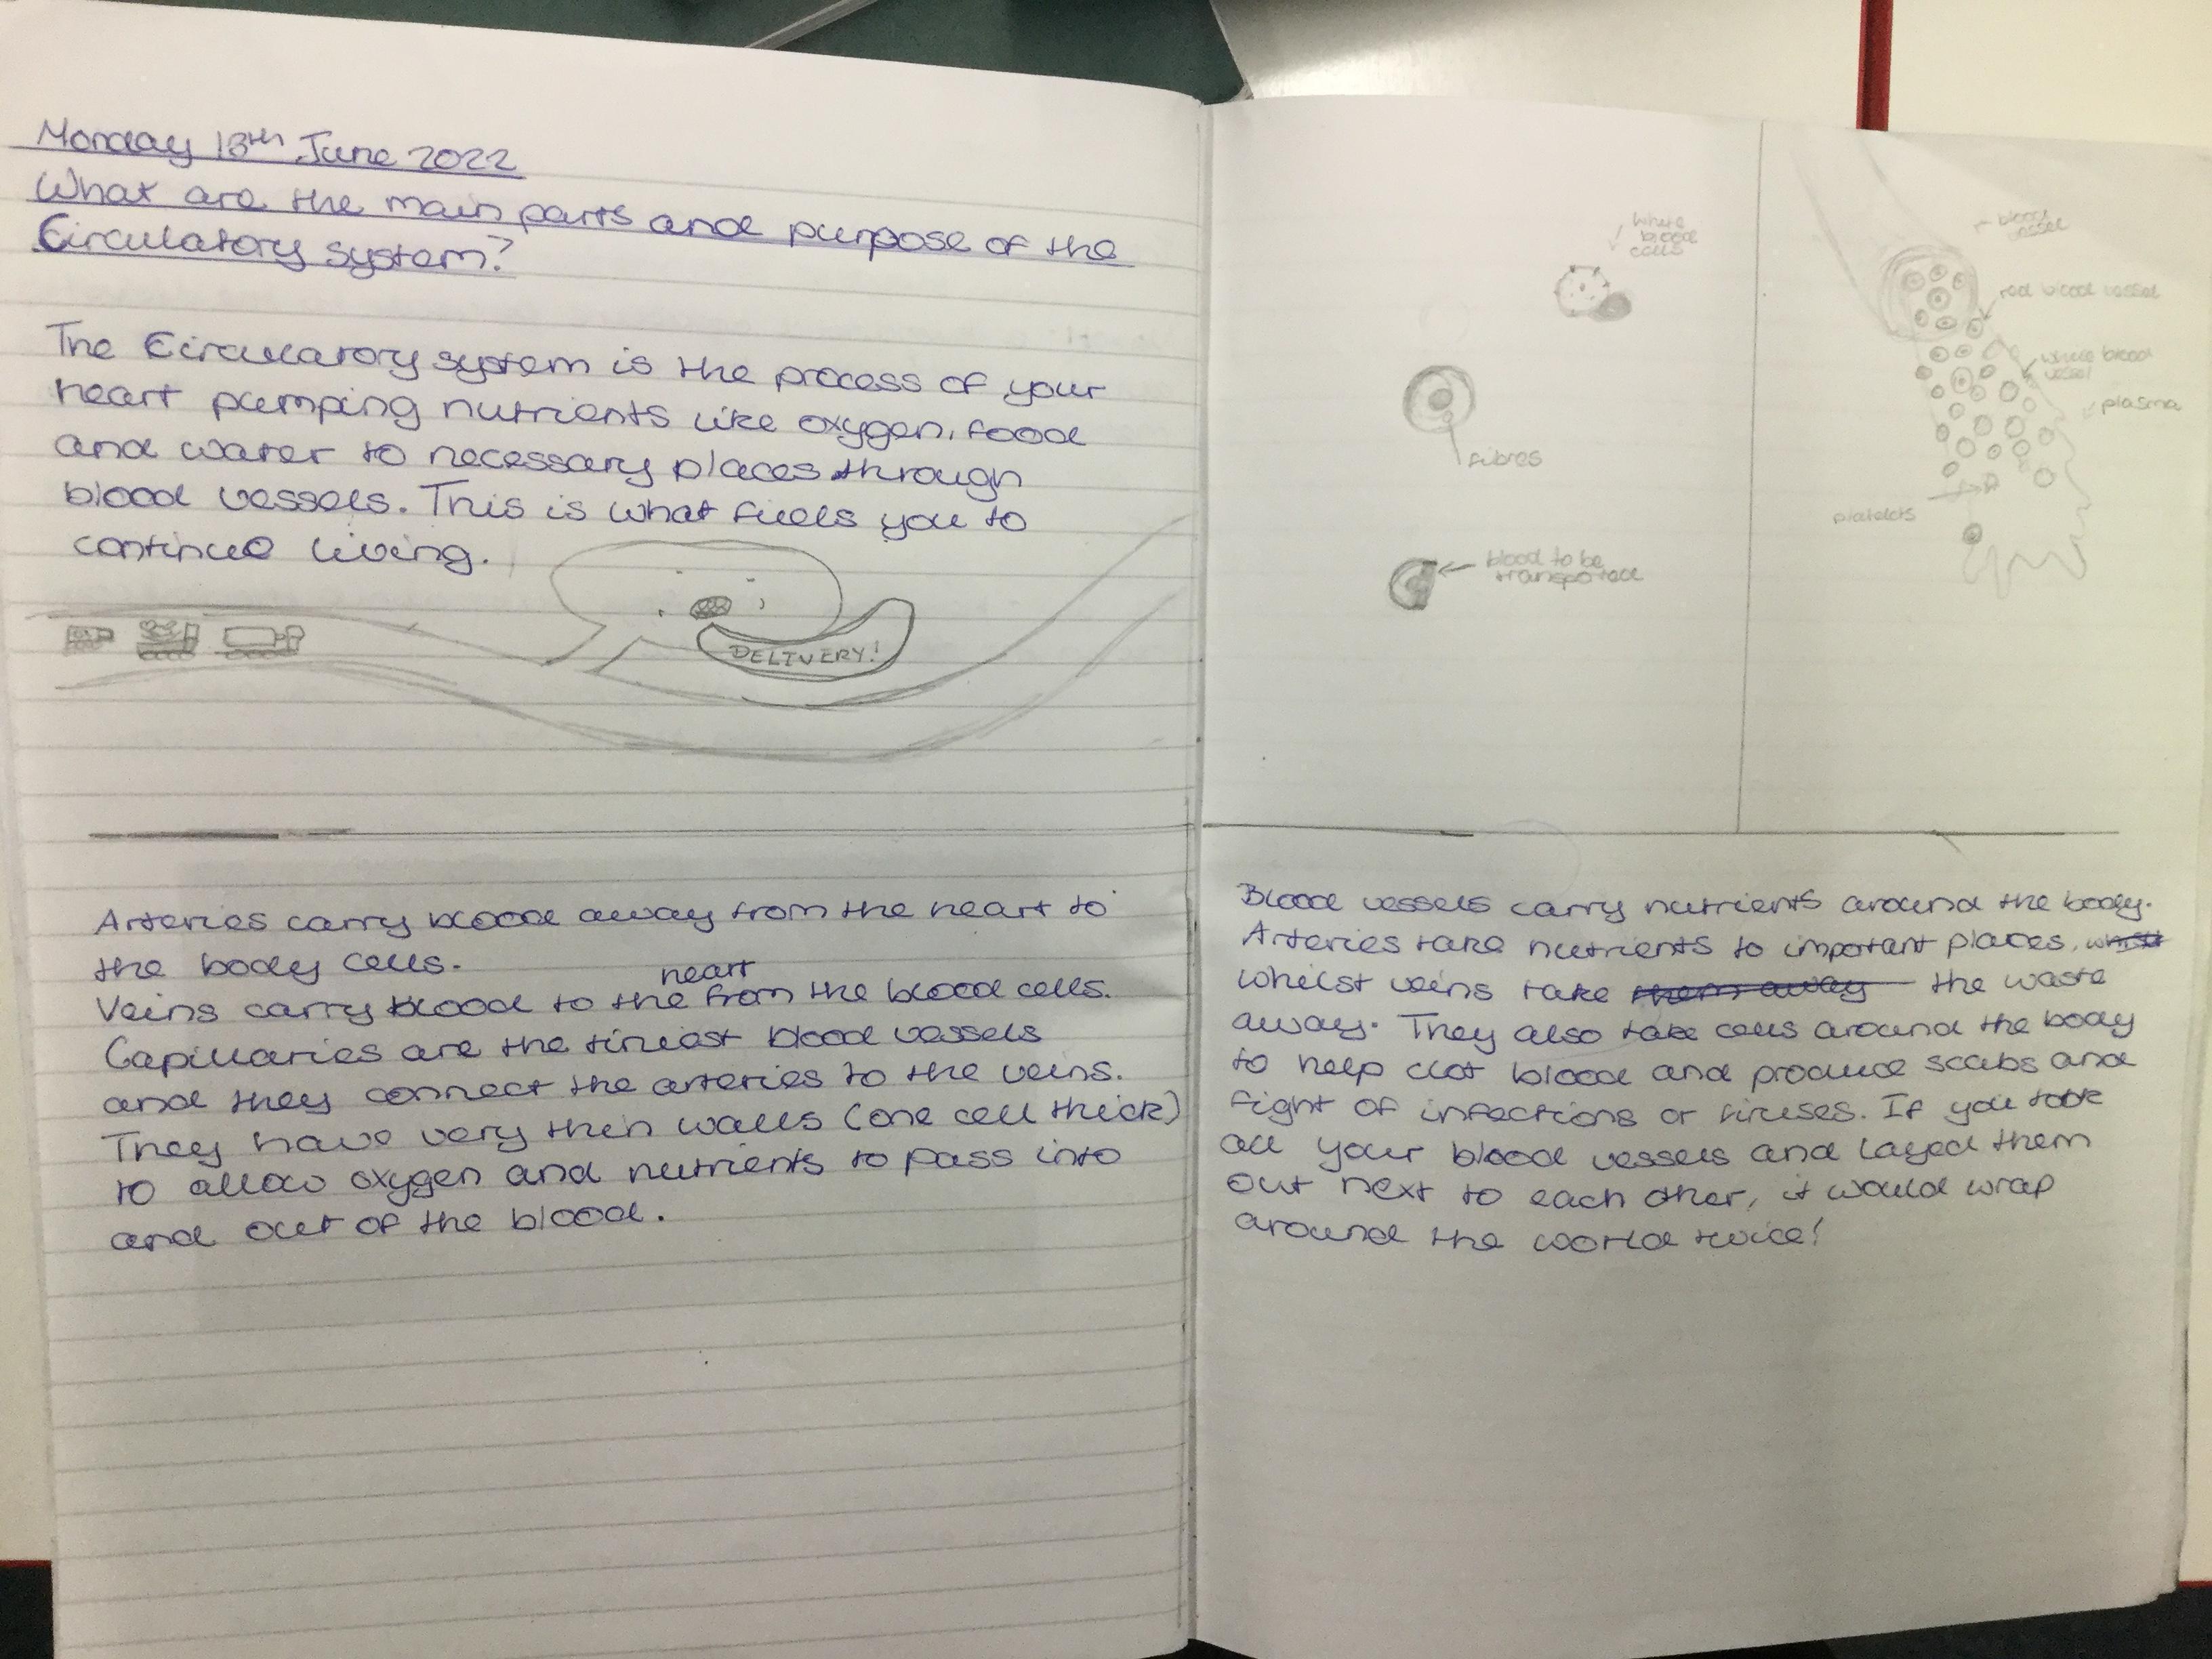 Monday 13th June 2022
What are the main parts and purpose of the
Circulatory system?
The Circulatory system is the process of your
heart pumping nutrients like oxygen, food
and water to necessary places through
blood vessels. This is what fuels you to
continue living.
DELIVERY!
Arteries carry blood away from the heart to
the body cells.
heart
Veins carry blood to the from the blood cells.
Capillaries are the tiniest blood vessels
and they connect the arteries to the veins.
They have very thin walls (one cell thick)
to allow oxygen and nutrients to pass into
and out of the blood.
white
blood
cells
fibres
blood to be
transported
blood
vessel
red blood vessel
white blood
vessel
plasma
platelets
Blood vessels carry nutrients around the body.
Arteries take nutrients to important places,
whilst veins take them away the waste
away. They also take cells around the body
to help clot blood and produce scabs and
fight of infections or viruses. If you took
all your blood vessels and layed them
out next to each other, it would wrap
around the world twice!